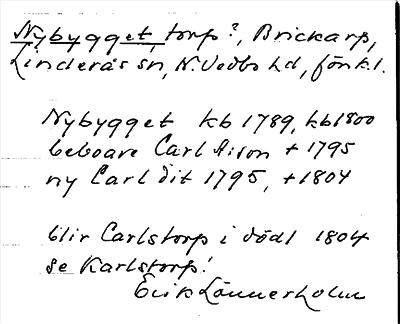 Nybygget torp?, Brickarp,
Linderås sn, N. Vedbo hd, jönk.l.
Nybygget kb 1789, kb 1800
beboare Carl Aison + 1795
ny Carl dit 1795, +1804
blir Carlstorp i dödl 1804
se Karlstorp!
Erik Lönnerholm